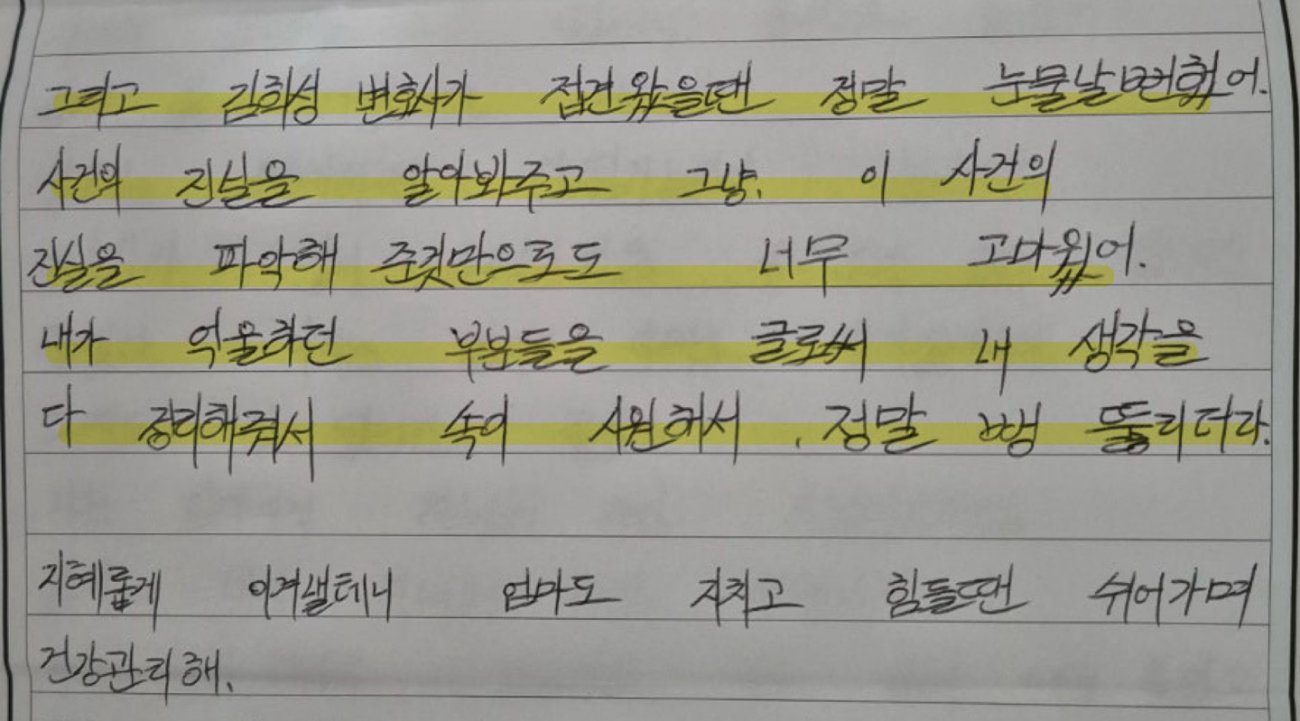 그리고 김희성 변호사가 접견왔을땐 정말 눈물날뻔했어.
사건의 진실을 알아봐주고 그냥. 이 사건의
진실을 파악해 준것만으로도 너무 고마웠어.
내가 억울하던 부분들을 글로써 내 생각을
다 정리해줘서 속이 시원해서. 정말 뻥 뚫리더라.
지혜롭게 이겨낼테니 엄마도 지치고 힘들땐 쉬어가며
건강관리해.